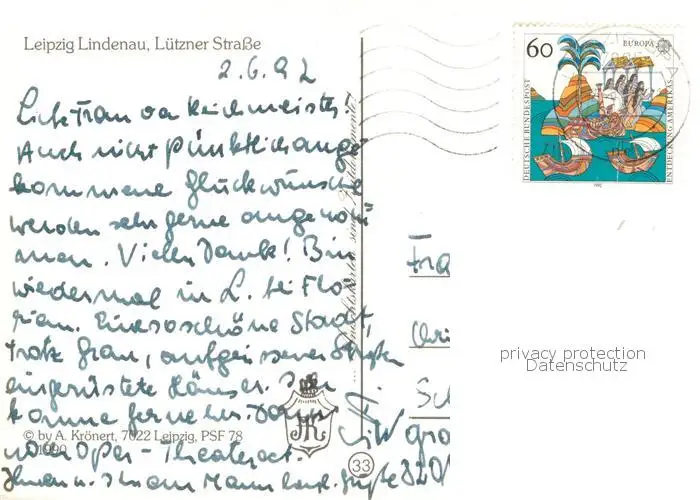 Leipzig Lindenau, Lützner Straße
2.6.92
Liebe Frau
Auch nicht pünktlich ange
kommene Glückwünsche
werden sehr gerne angenom
men. Vielen Dank! Bin
wiedermal in L. bei Flo
rian. Eine so schöne Stadt,
trotz Grau, aufgerissener Straßen
eingerüstete Häuser. Ich
komme gerne her. Dann
noch Oper - Theater
Ihnen u. Ihrem Mann herzl. Grüße
© by A. Krönert, 7022 Leipzig, PSF 78
1990
33
60
EUROPA
DEUTSCHE BUNDESPOST
ENTDECKUNG AMERIKAS
1992
Fra
Sc
privacy protection
Datenschutz